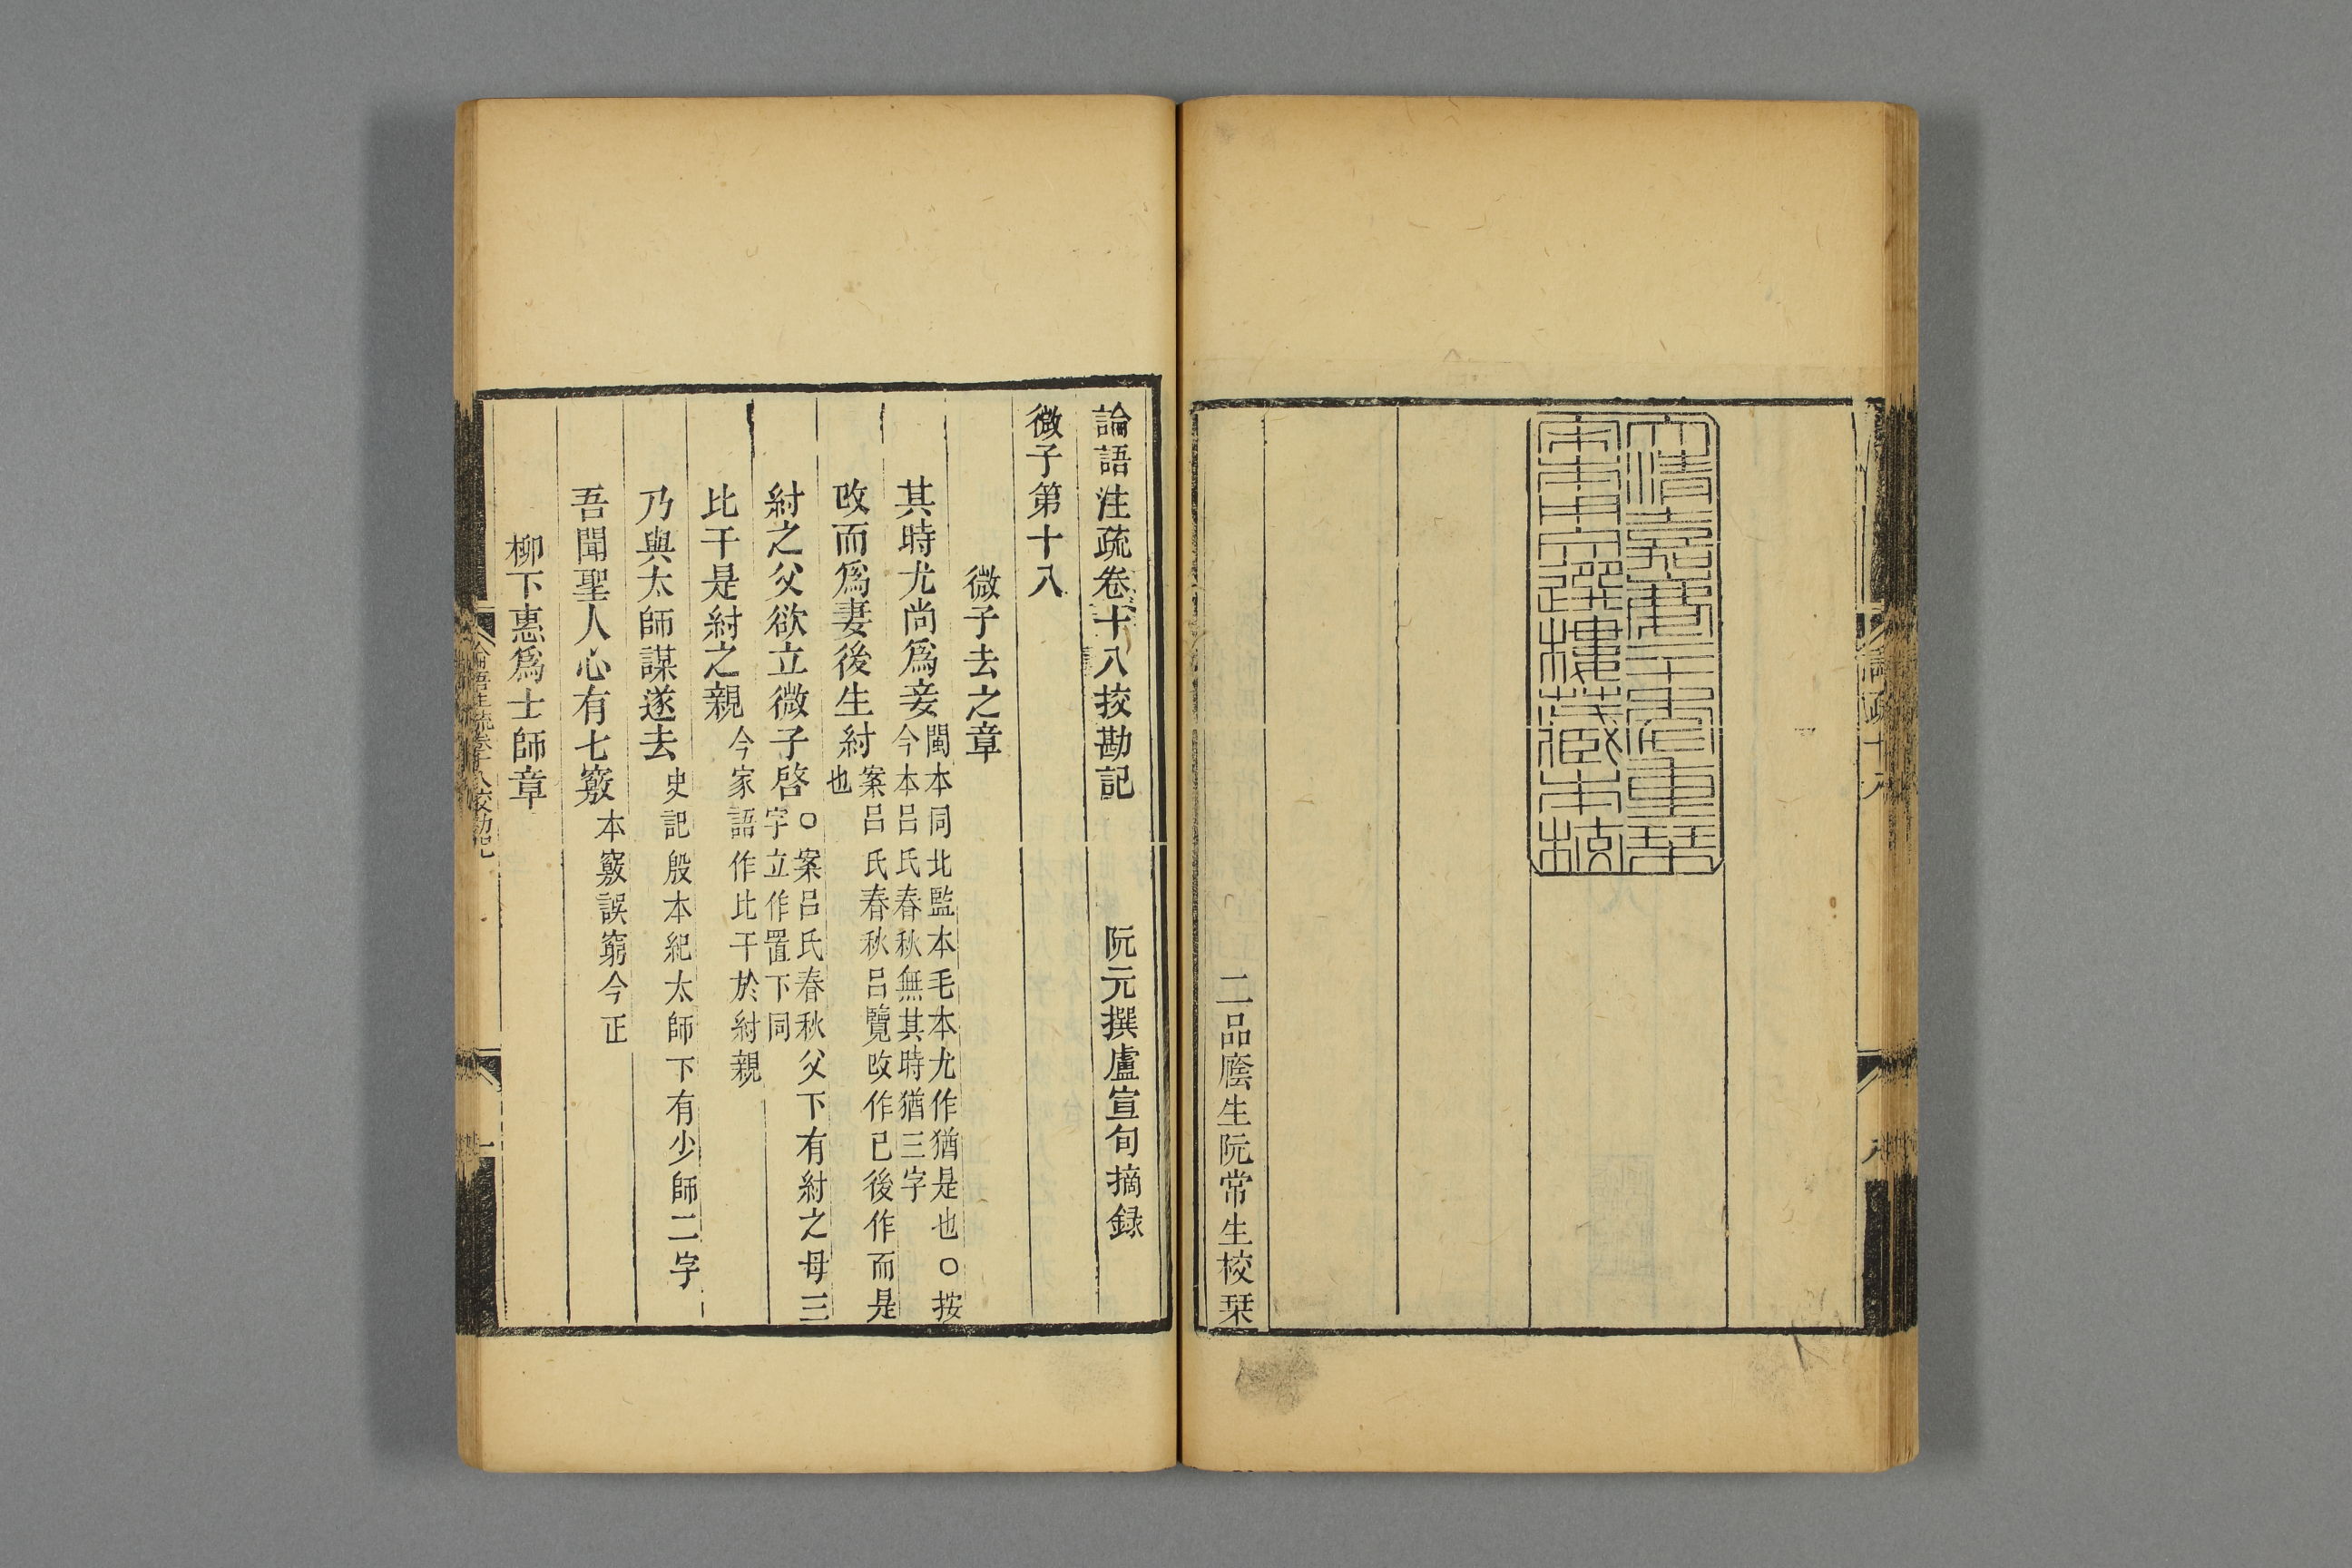 大清嘉慶二十年重栞
宋本用文選樓藏本校
二品廕生阮常生校栞
論語注疏卷十八挍勘記 阮元撰盧宣旬摘録
微子第十八
微子去之章
其時尤尚爲妾 閩本同北監本毛本尤作猶是也○按
今本呂氏春秋無其時猶三字
改而爲妻後生紂 案呂氏春秋呂覽改作已後作而是
也
紂之父欲立微子啓 ○案呂氏春秋父下有紂之母三
字立作置下同
比干是紂之親 今家語作比干於紂親
乃與太師謀遂去 史記殷本紀太師下有少師二字
吾聞聖人心有七竅 本竅誤窮今正
柳下惠爲士師章
論語注疏卷十八校勘記
一